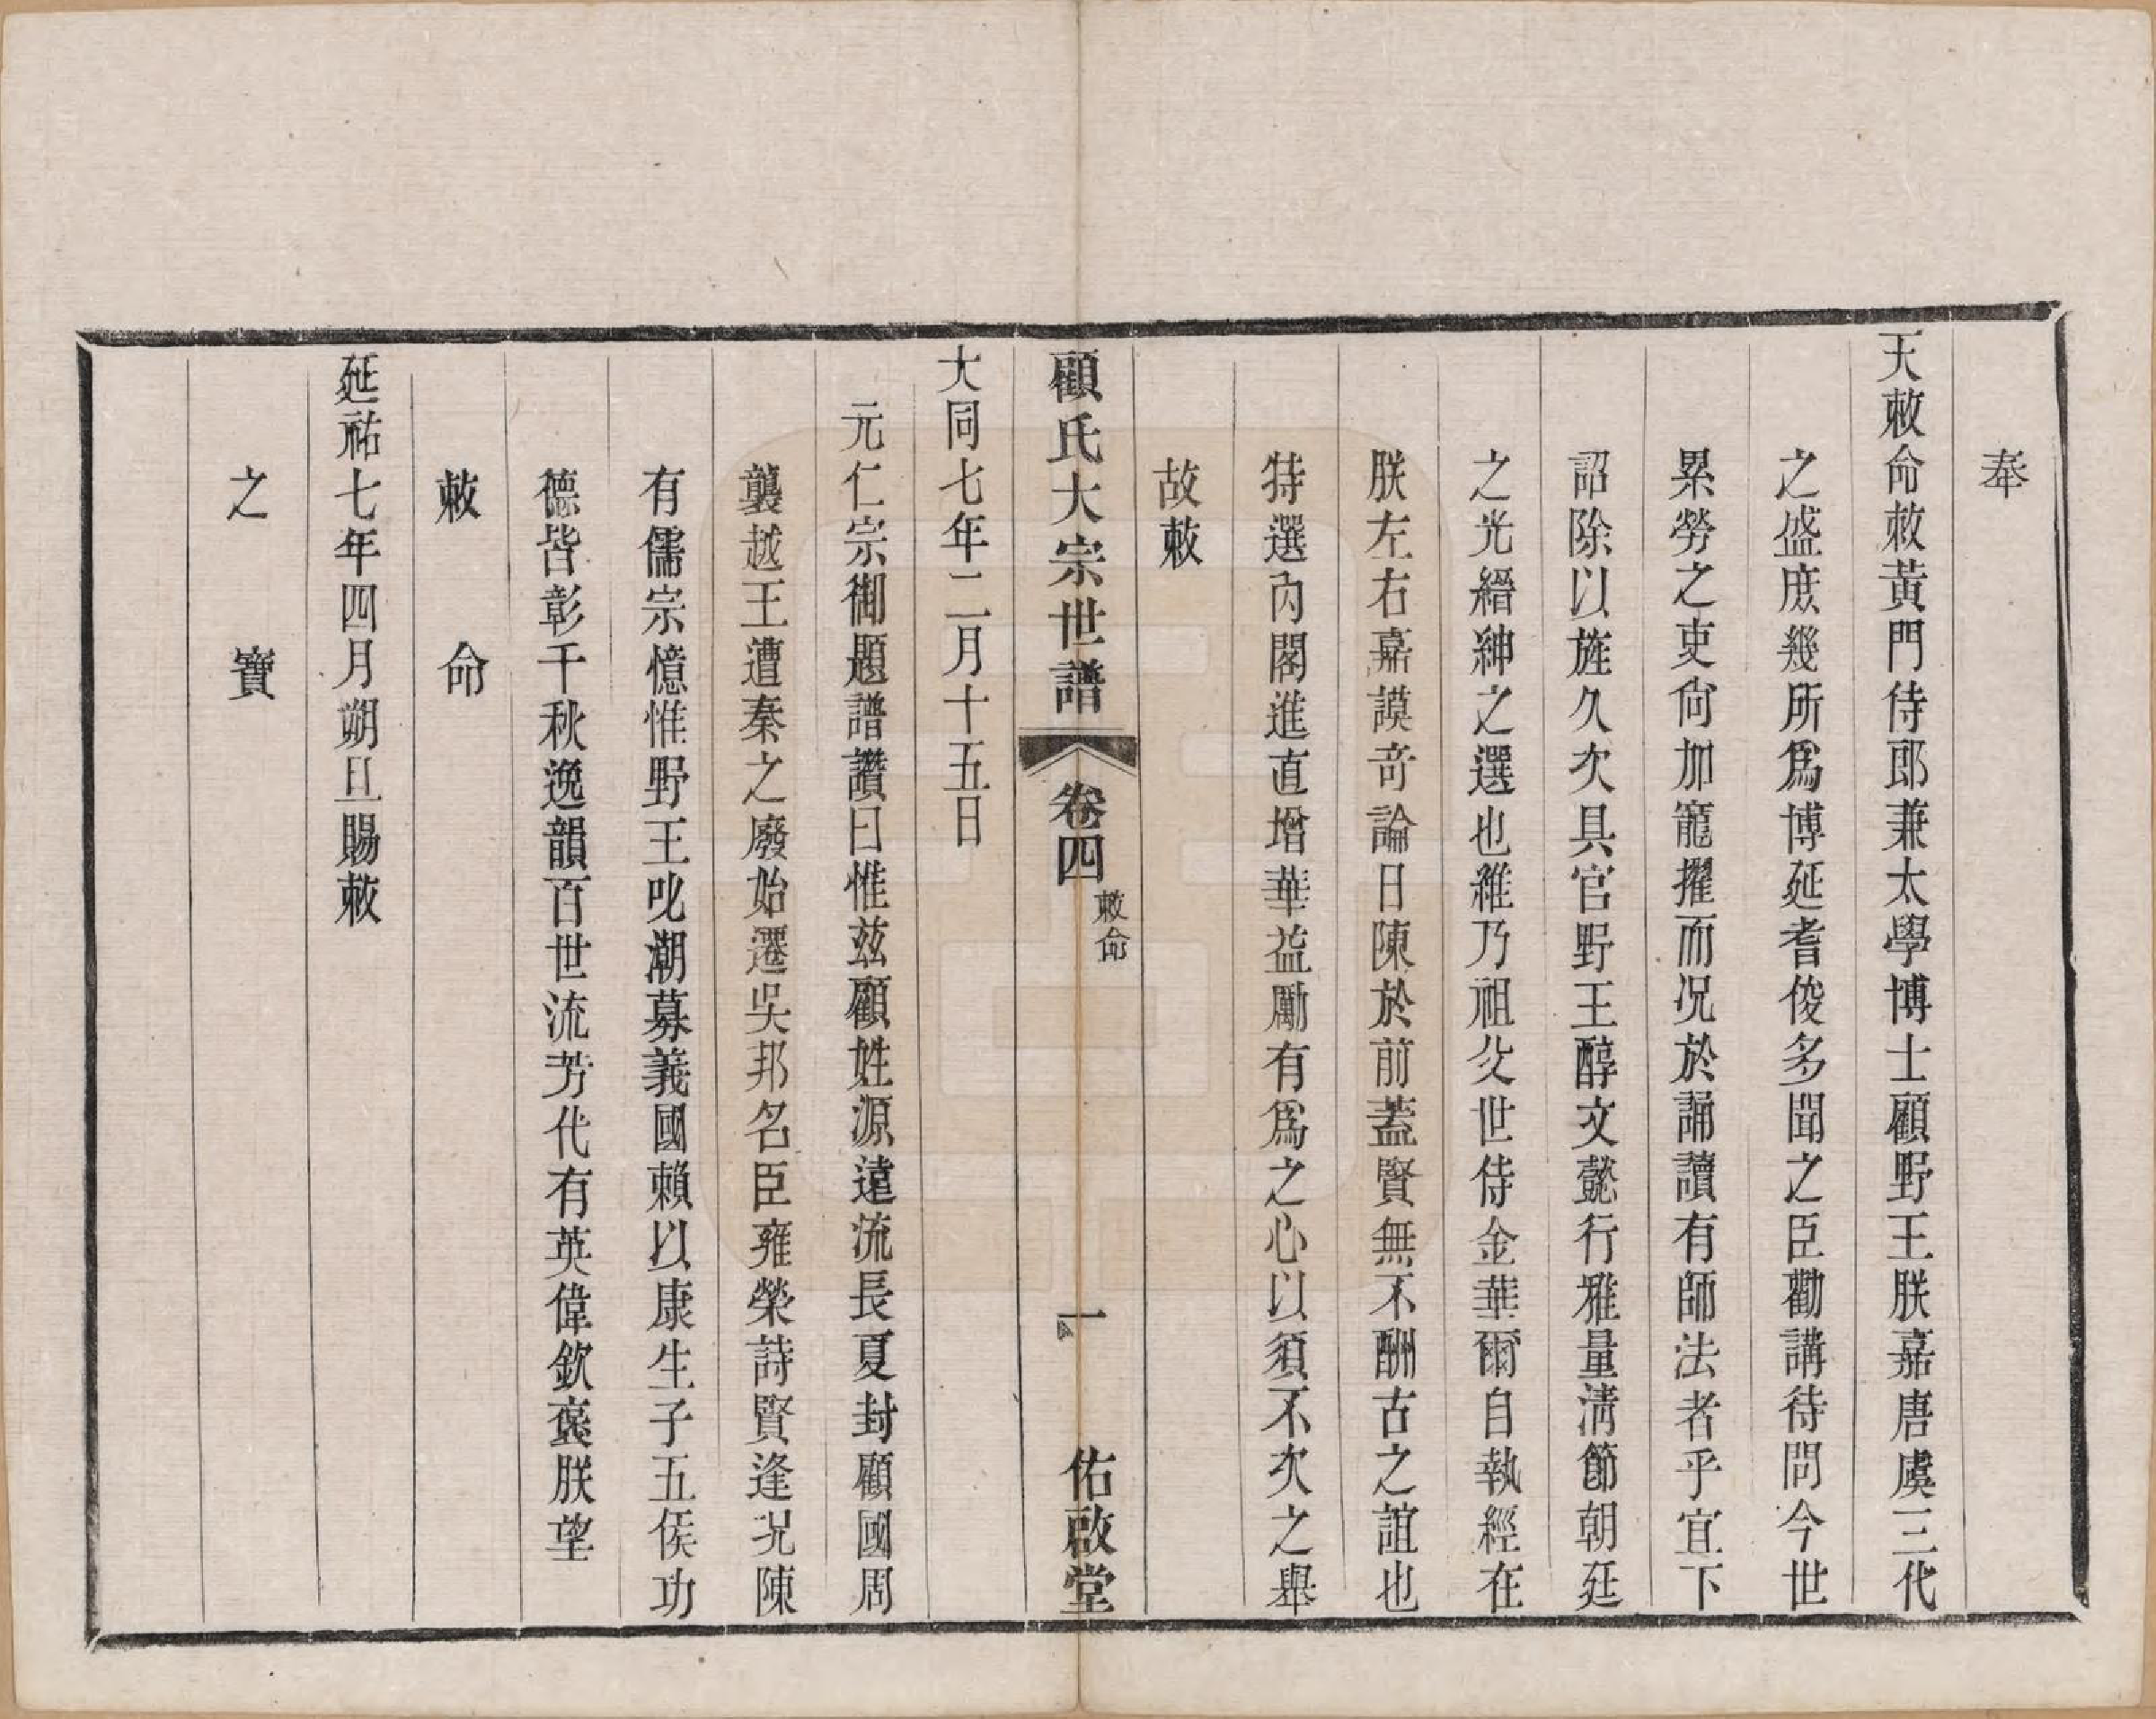 奉
天敕命敕黃門侍郎兼太學博士顧野王朕嘉唐虞三代
之盛庶幾所爲博延耆俊多聞之臣勸講待問今世
累勞之吏尙加寵擢而况於誦讀有師法者乎宜下
詔除以旌久次具官野王醇文懿行雅量淸節朝廷
之光縉紳之選也維乃祖父世侍金華爾自執經在
朕左右嘉謨奇論日陳於前蓋賢無不酬古之誼也
特選內閣進直增華益勵有爲之心以須不次之舉
故敕
顧氏大宗世譜 卷四 敕命 一 佑啟堂
大同七年二月十五日
元仁宗御題譜讚曰惟茲顧姓源遠流長夏封顧國周
襲越王遭秦之廢始遷吳邦名臣雍榮詩賢逢況陳
有儒宗憶惟野王叱潮募義國賴以康生子五侯功
德皆彰千秋逸韻百世流芳代有英偉欽褒朕望
敕命
延祐七年四月朔旦賜敕
之寶